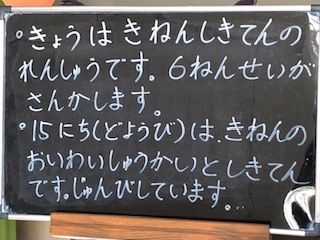 。きょうは きねんしきてんの
れんしゅうです。6ねんせいが
さんかします。
。15にち(どようび)は、きねんの
おいわいしゅうかいとしきてん
です。じゅんびしています。